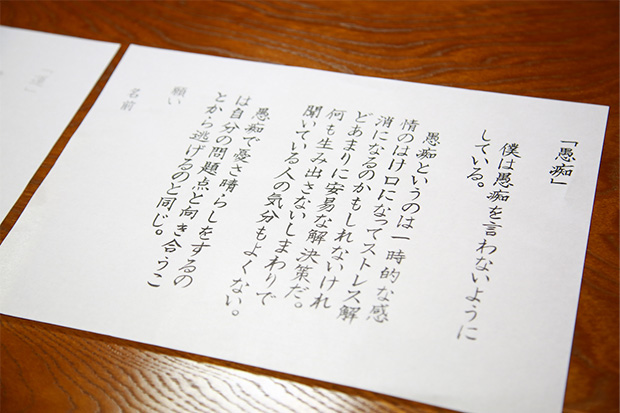 「愚痴」
僕は愚痴を言わないように
している。
愚痴というのは一時的な感
情のはけ口になってストレス解
消になるのかもしれないけれ
どあまりに安易な解決策だ。
何も生み出さないしまわりで
聞いている人の気分もよくない。
愚痴で憂さ晴らしをするの
は自分の問題点と向き合うこ
とから逃げるのと同じ。
願い
名前